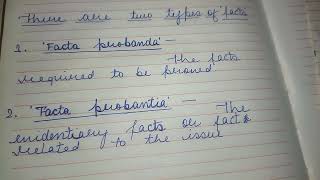 There are two types of facts
1. 'Facta probanda' -
the facts
required to be proved
2. 'Facta probantia' - the
evidentiary facts or facts
related to the issue